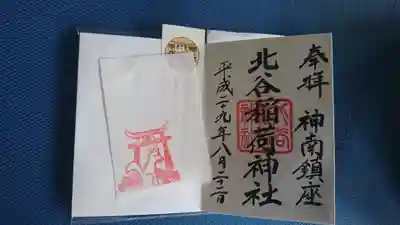 奉拝 神南鎮座
北谷稲荷神社
平成二九年八月二二日